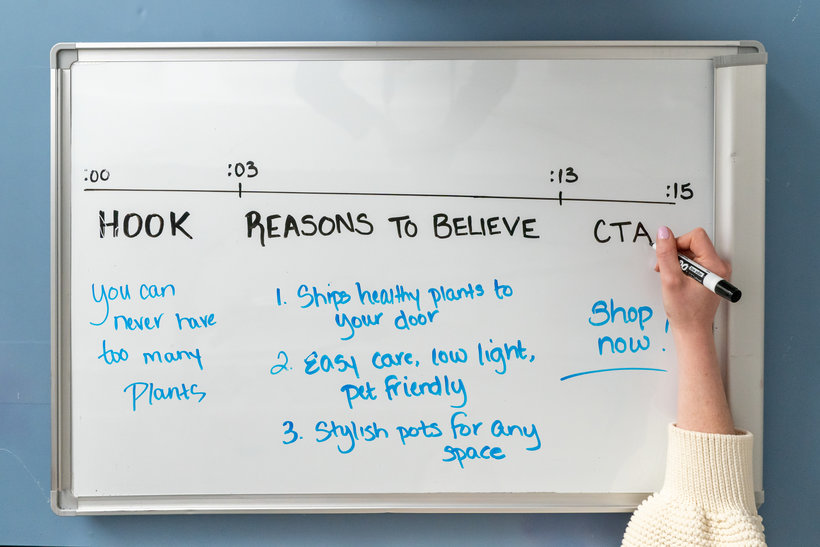 :00 :03 :13 :15
HOOK REASONS TO BELIEVE CTA
you can
never have
too many
Plants
1. Ships healthy plants to
your door
2. Easy care, low light,
pet friendly
3. Stylish pots for any
space
Shop
now!